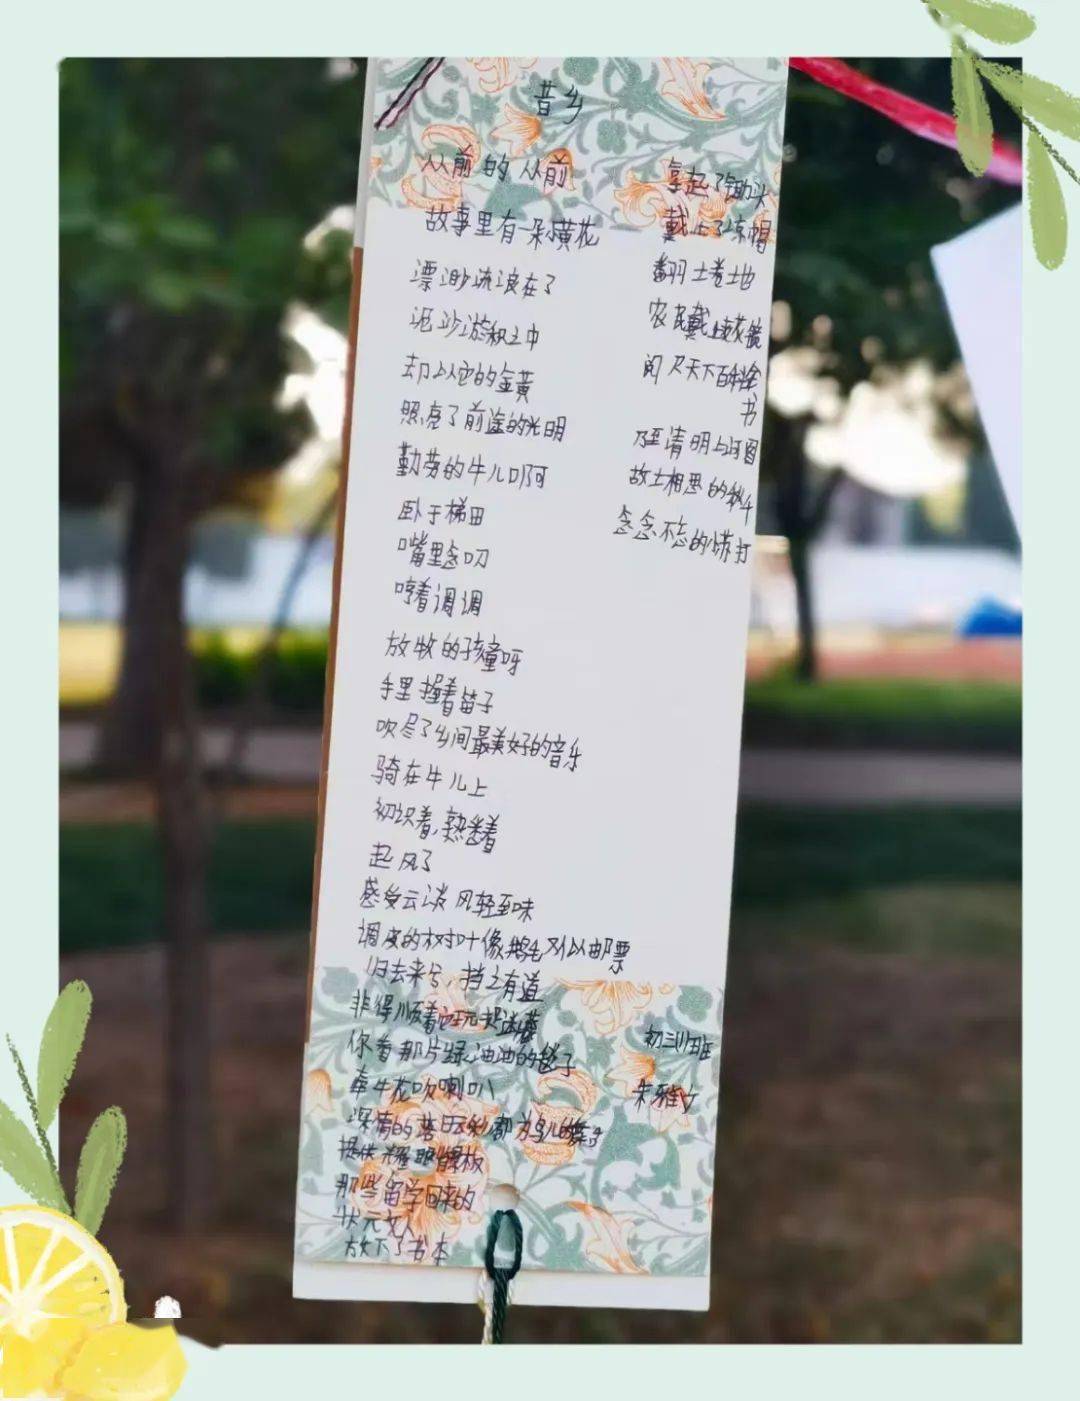 昔乡
从前的从前
故事里有一朵小黄花
漂渺流浪在了
泥沙淤积之中
却以它的金黄
照亮了前途的光明
勤劳的牛儿叼河
卧于梯田
嘴里念叨
哼着调调
放牧的孩童呀
手里握着笛子
吹尽了乡间最美好的音乐
骑在牛儿上
初识着,熟悉着
起风了
感受云淡风轻至味
调皮的树叶像鹅毛又似邮票
归去来兮,挡之有道
非得顺着它玩起迷藏
你看那片绿油油的毯子
牵牛花吹喇叭
深情的落日云彩都为鸟儿的舞步
提供耀眼牌板
那些留学回来的
状元女人
放下了书本
拿起了锄头
戴上了凉帽
翻土卷地
农民戴上老花镜
阅尽天下百科全
书
乃至清明上河图
故土相思的秋千
念念不忘的
初三11班
朱雅